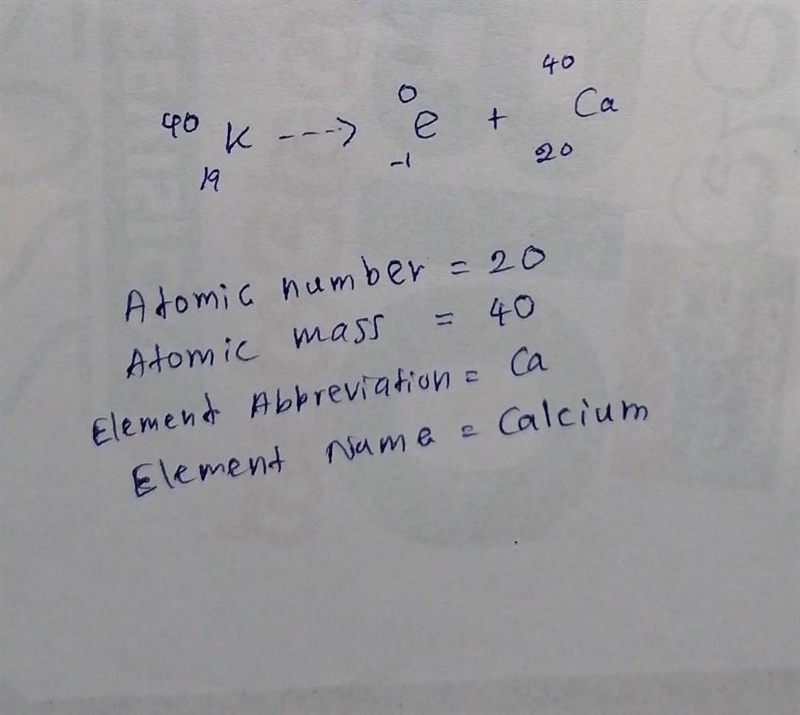 ⁴⁰₁₉K ---> ⁰₋₁e + ⁴⁰₂₀Ca
Atomic number = 20
Atomic mass = 40
Element Abbreviation = Ca
Element Name = Calcium